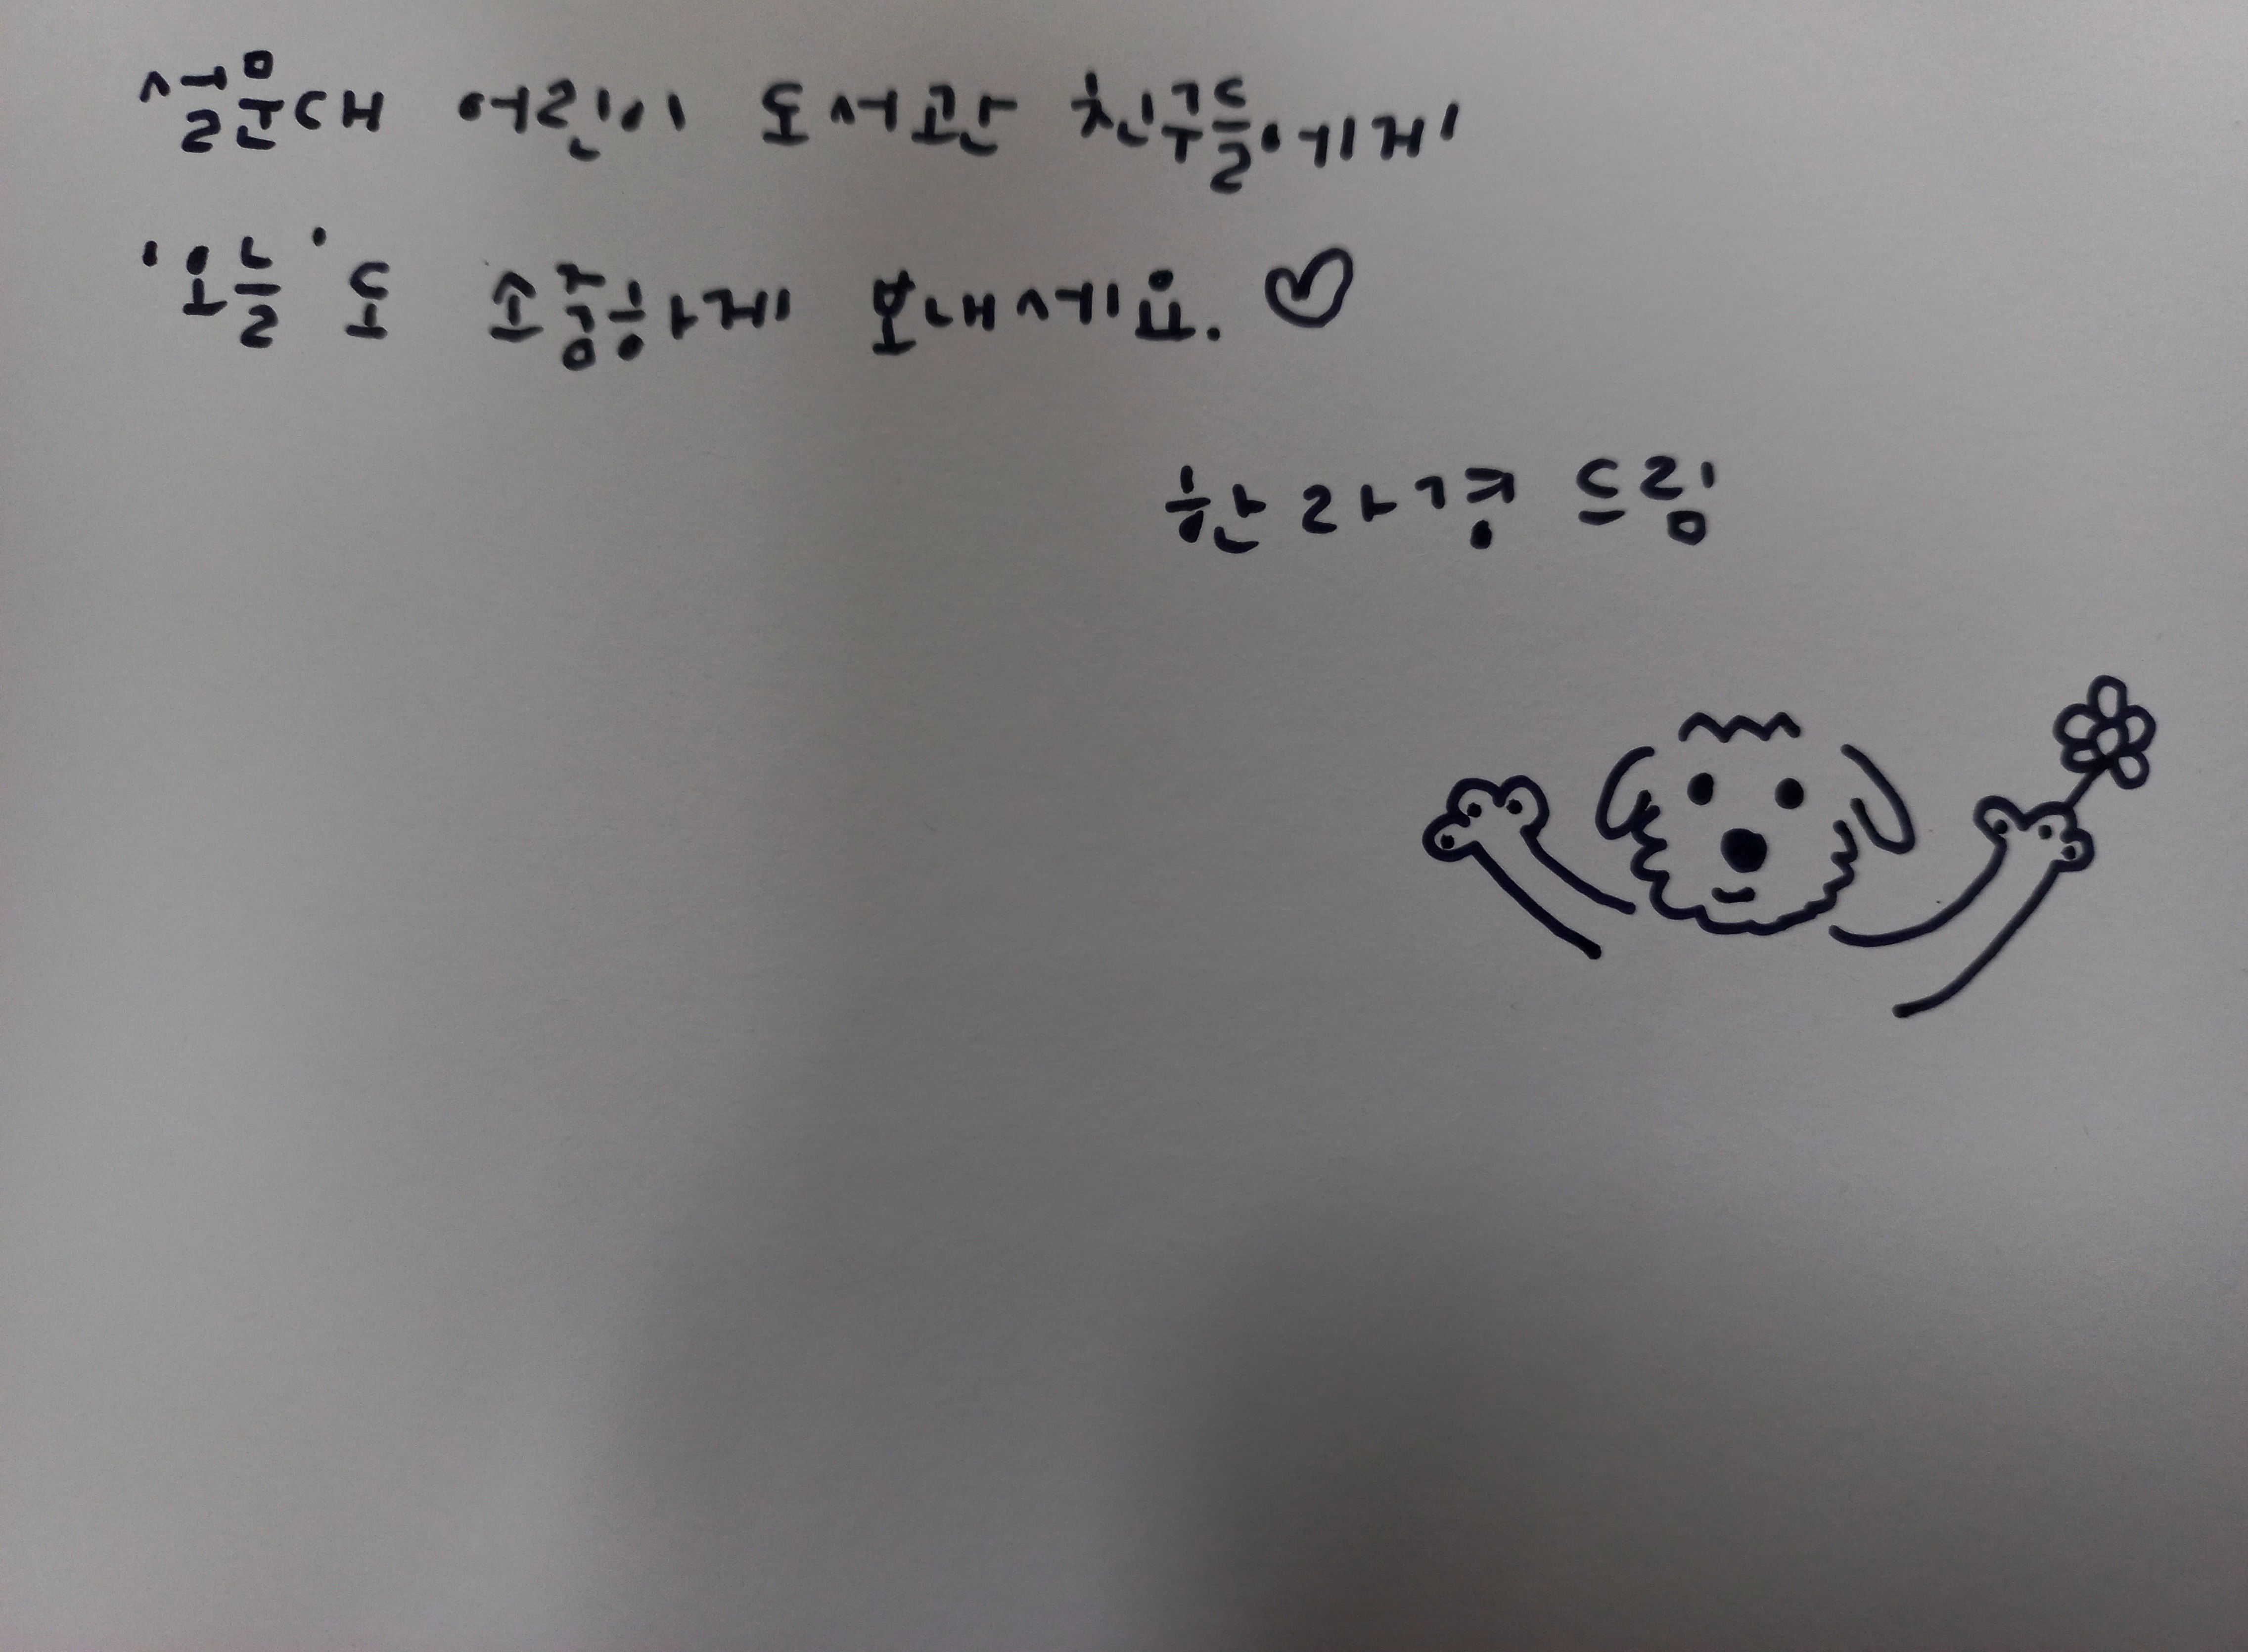 설문대 어린이 도서관 친구들에게
'오늘'도 소중하게 보내세요. ♡
한라경 드림